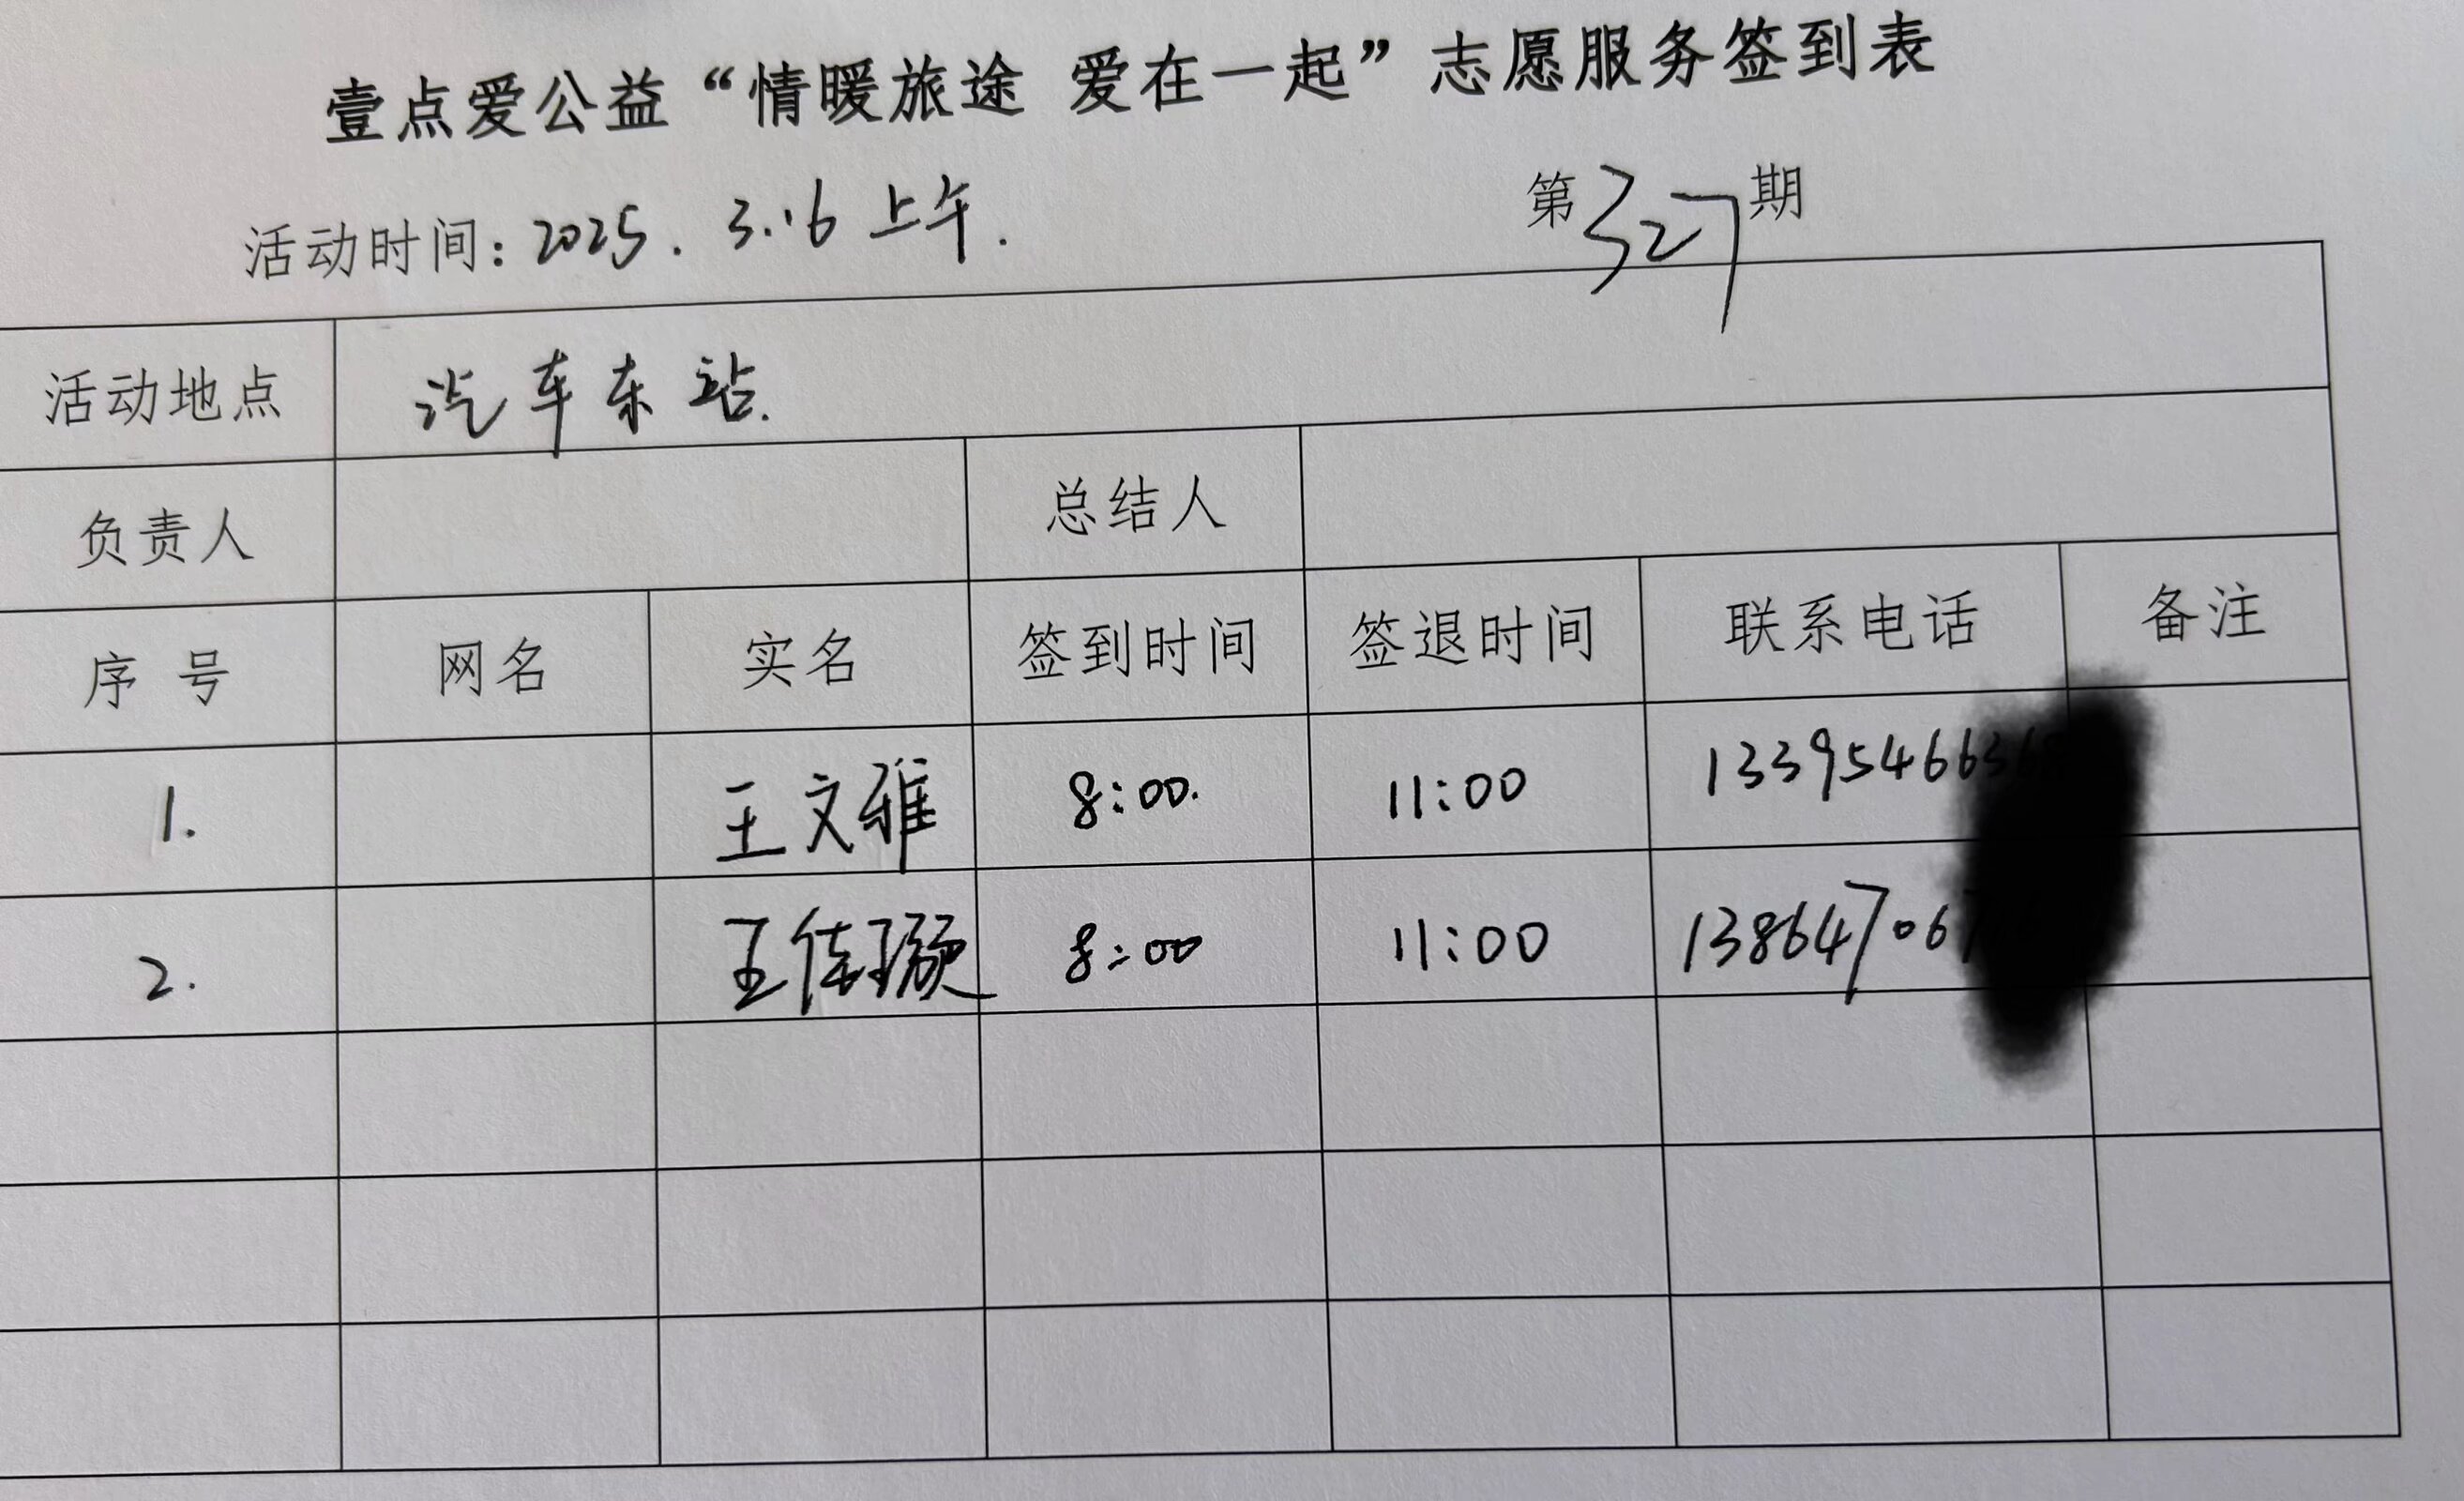 壹点爱公益“情暖旅途 爱在一起”志愿服务签到表
活动时间：2025.3.16上午.
第327期
活动地点 汽车东站.
负责人 总结人
序 号 网名 实名 签到时间 签退时间 联系电话 备注
1. 王文雅 8:00. 11:00 133954663
2. 王佳 8:00 11:00 13864706